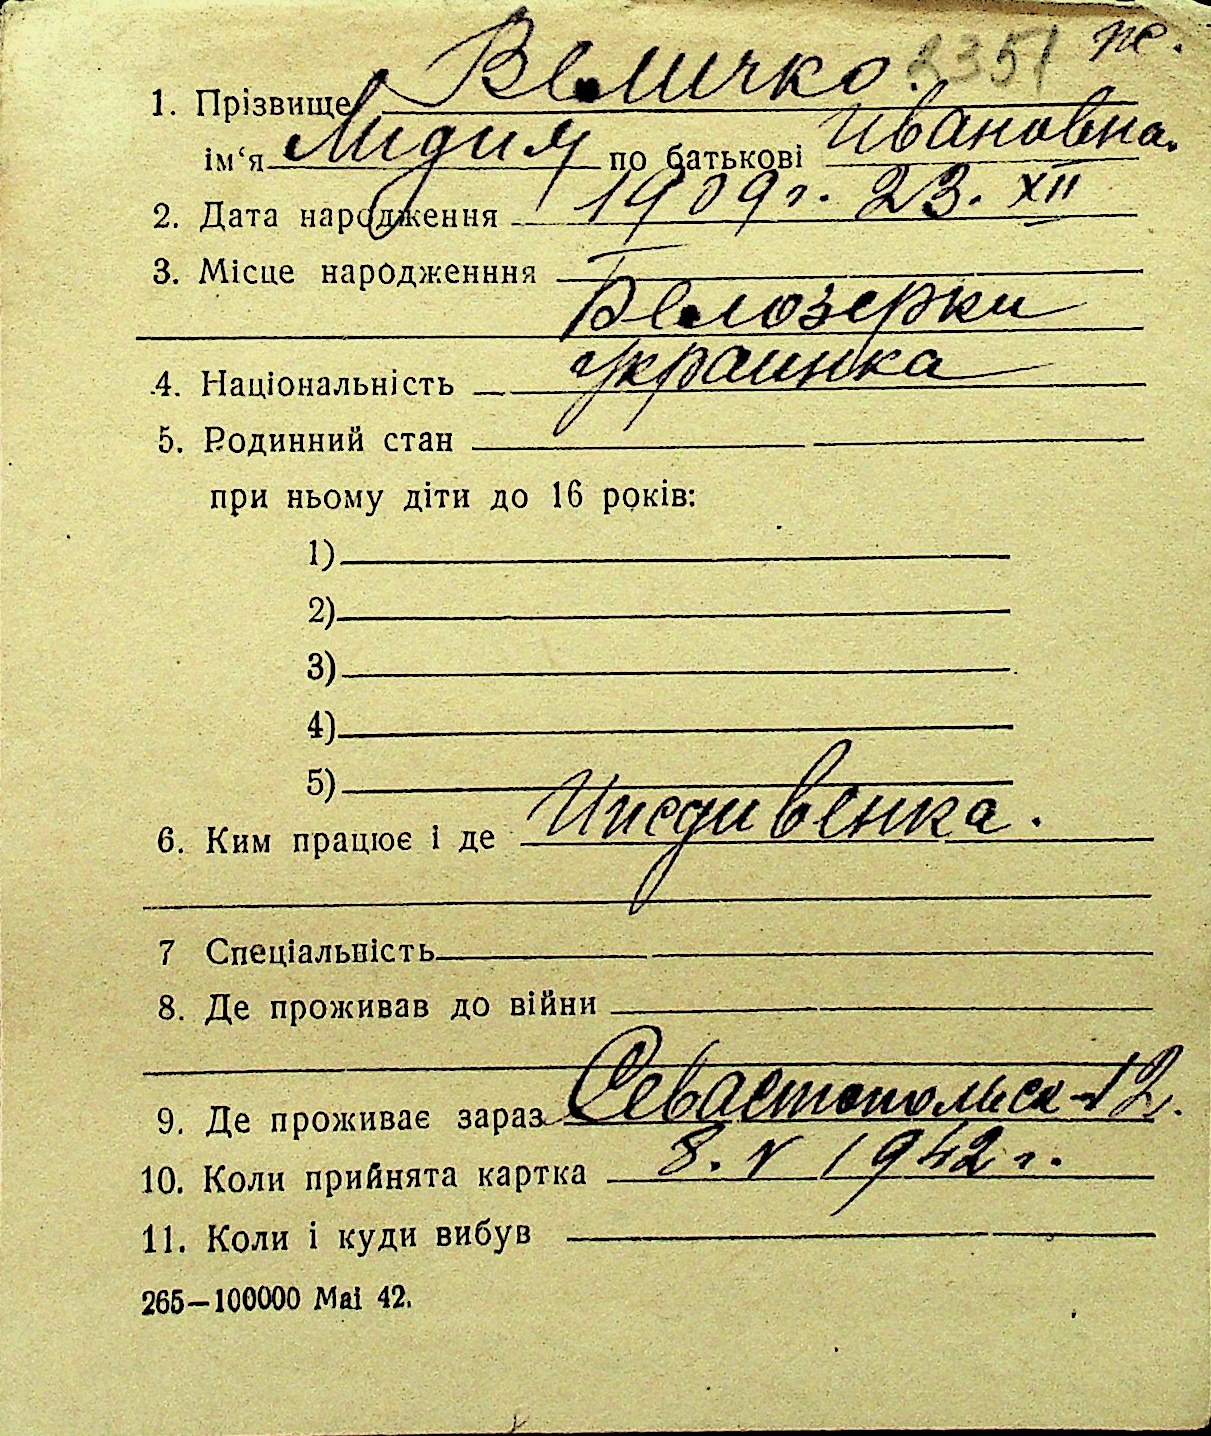 2351 ж.
1. Прізвище Величко.
ім‘я Лидия по батькові Ивановна.
2. Дата народження 1909 г. 23. XII
3. Місце народженння
Белозерки
4. Національність украинка
5. Родинний стан
при ньому діти до 16 років:
1)
2)
3)
4)
5)
6. Ким працює і де Иждивенка.
7 Спеціальність
8. Де проживав до війни
9. Де проживає зараз Севастопольск 12.
10. Коли прийнята картка 8. V 1942 г.
11. Коли і куди вибув
265—100000 Mai 42.